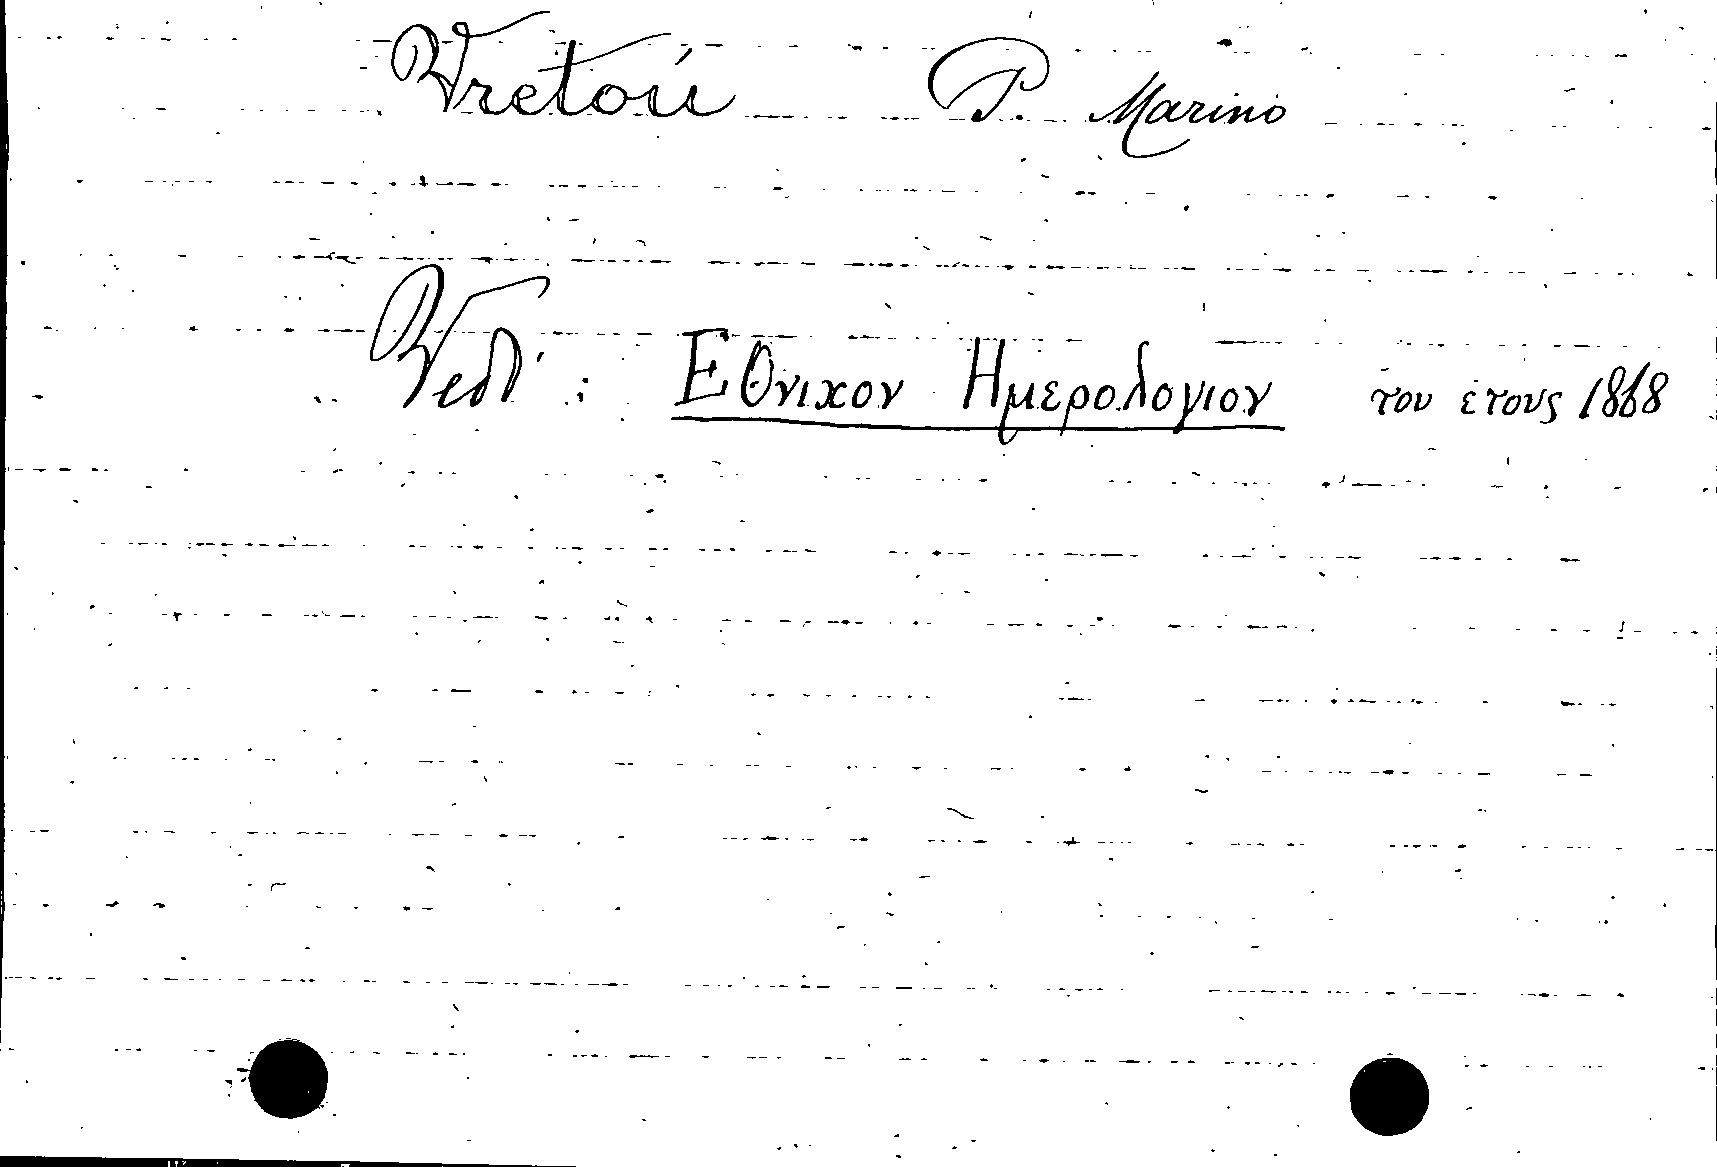 Vretoú P. Marino
Vedi: Εθνιχον Ημερολογιον του ετους 1868